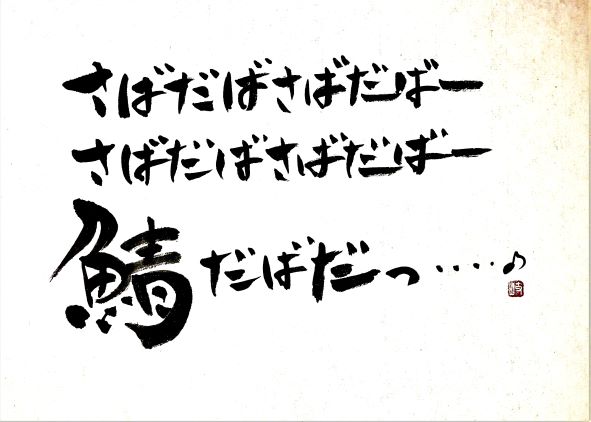 さばだばさばだばー
さばだばさばだばー
鯖だばだっ‥‥♪